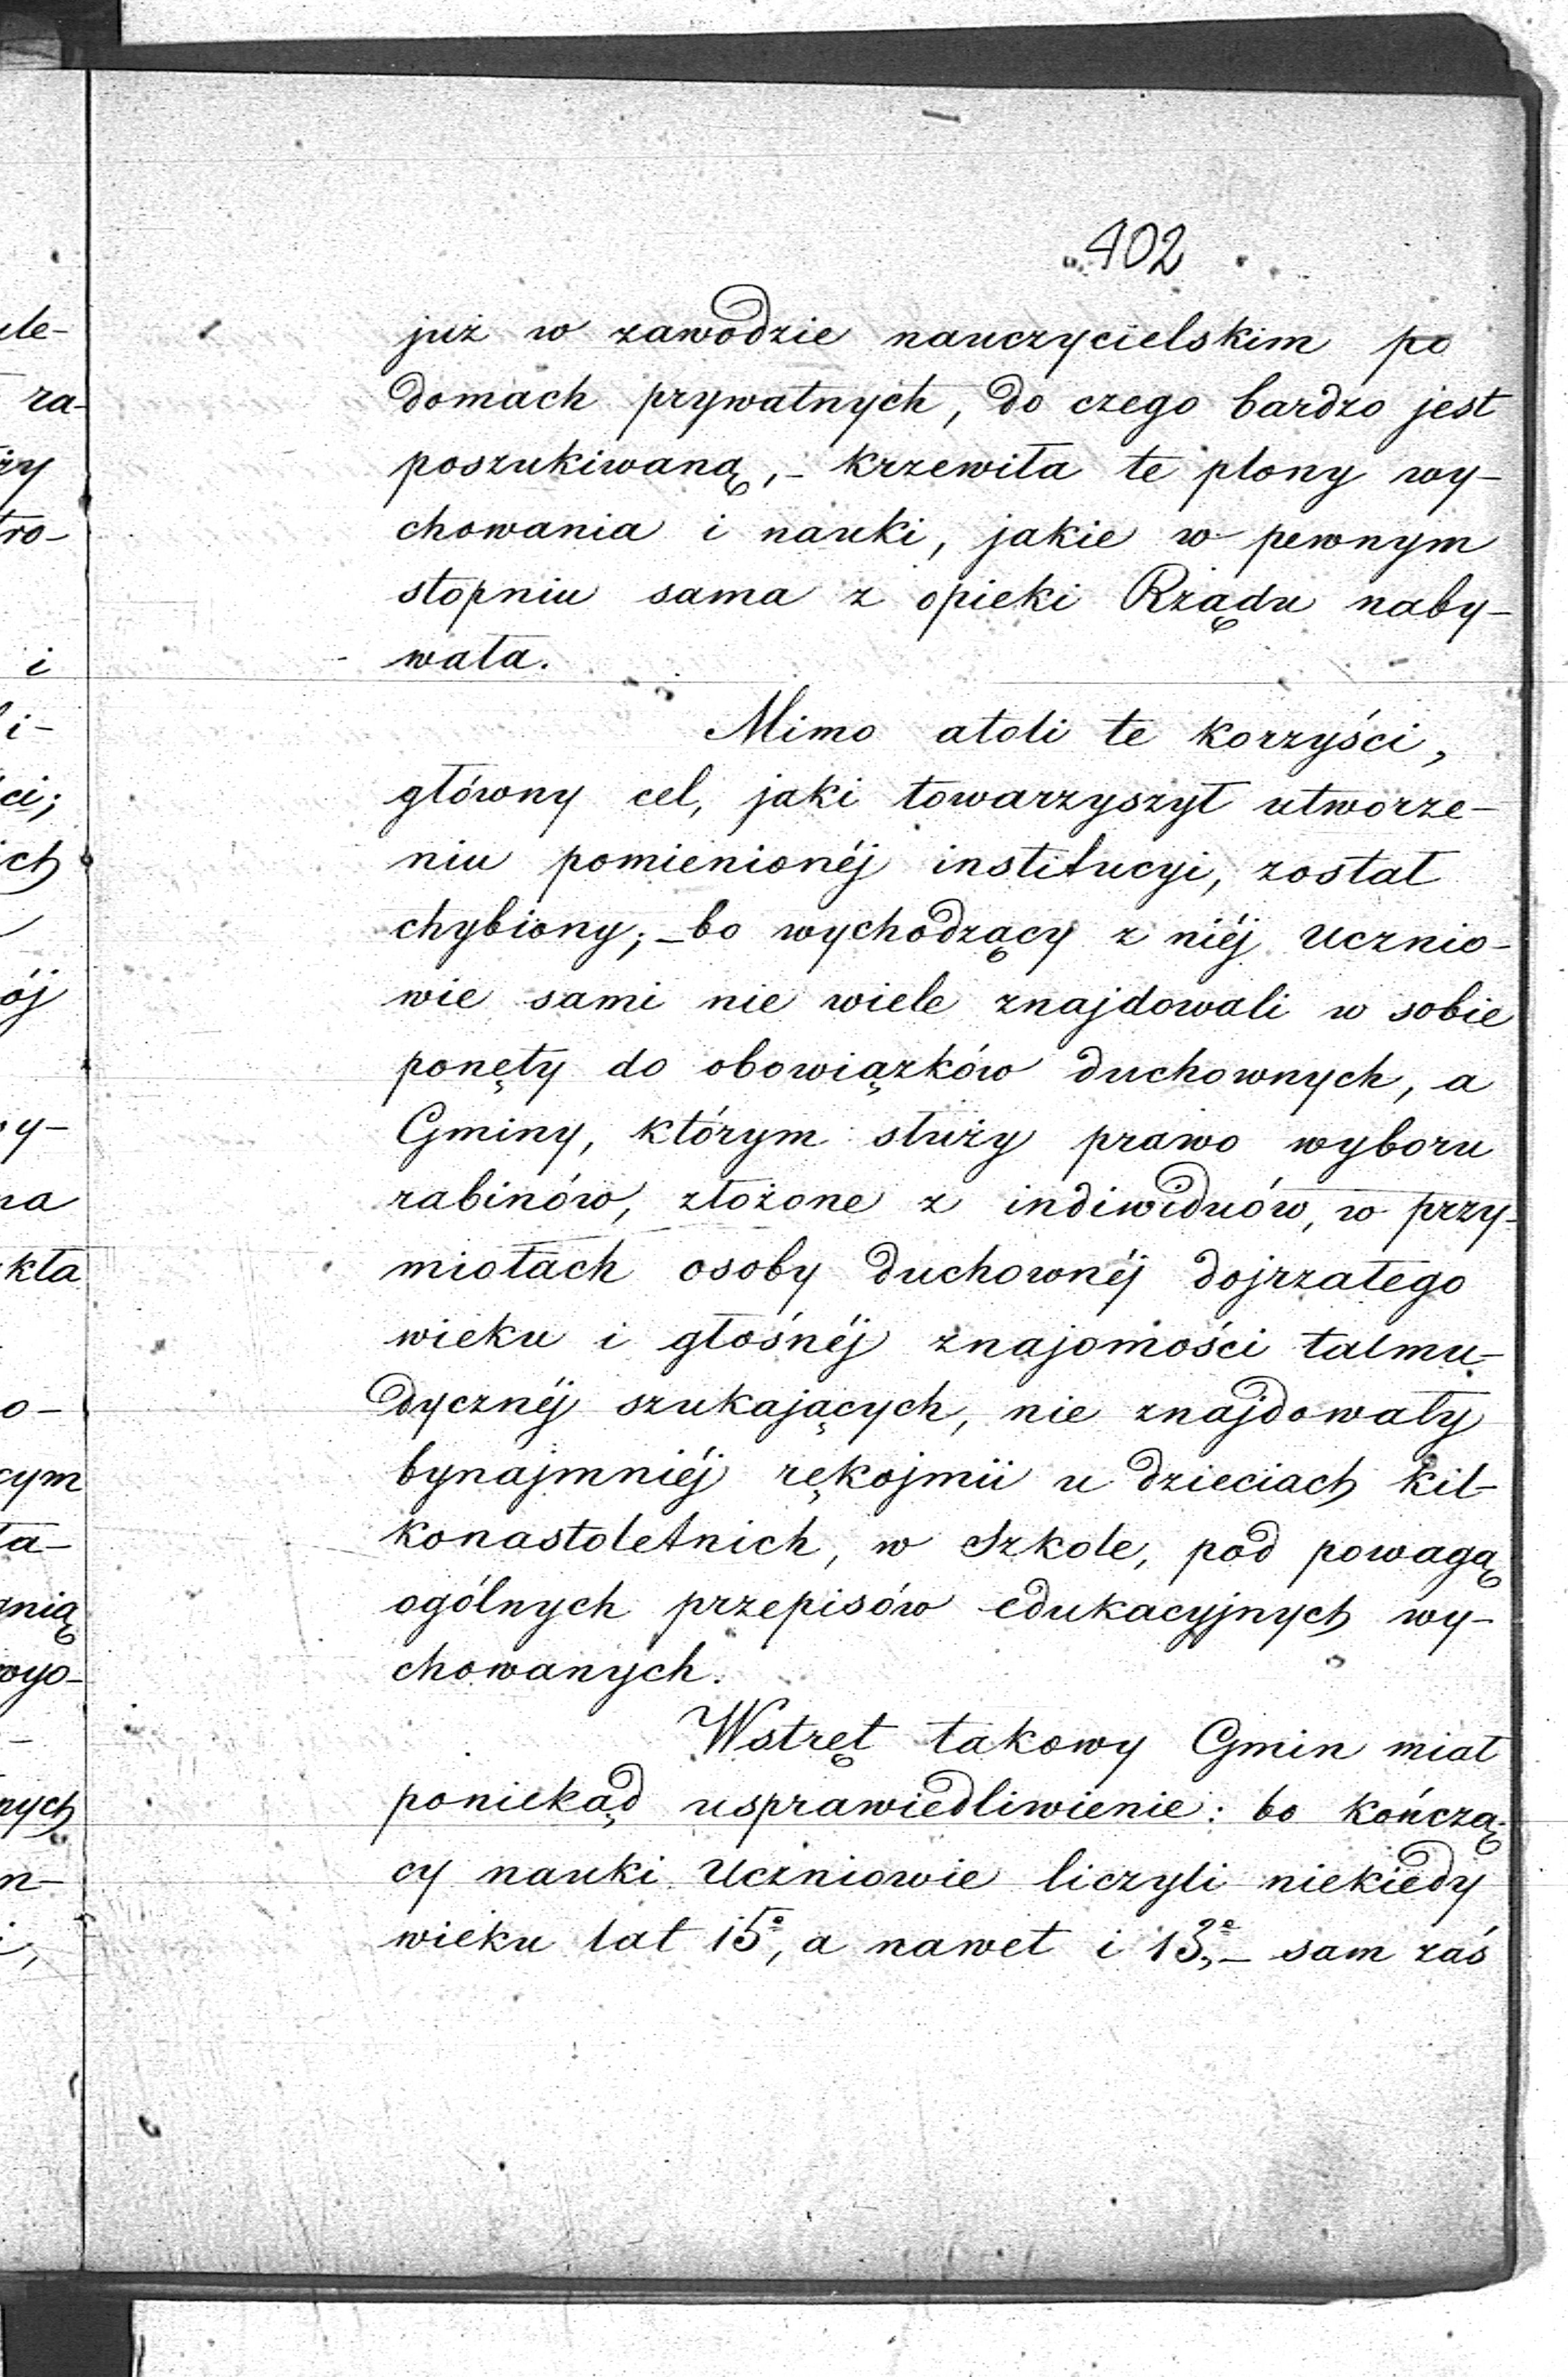 402
już w zawodzie nauczycielskim po
domach prywatnych, do czego bardzo jest
poszukiwaną,- krzewiła te plony wy-
chowania i nauki, jakie w pewnym
stopniu sama z opieki Rządu naby-
wała.
Mimo atoli te korzyści,
główny cel, jaki towarzyszył utworze-
niu pomienionéj institucyi, został
chybiony; - bo wychodzący z niéj Ucznio-
wie sami nie wiele znajdowali w sobie
ponęty do obowiązków duchownych, a
Gminy, którym służy prawo wyboru
rabinów, złożone z indiwiduów, w przy-
miotach osoby duchownéj dojrzałego
wieku i głośnéj znajomości talmu-
dycznéj szukających, nie znajdowały
bynajmniéj rękojmii u dzieciach kil-
konastoletnich, w Szkole, pod powagą
ogólnych przepisów edukacyjnych wy-
chowanych.
Wstręt takowy Gmin miał
poniekąd usprawiedliwienie: bo kończą-
cy nauki Uczniowie liczyli niekiedy
wieku lat 15, a nawet i 13,- sam zaś
ule-
ra-
ży
tro-
i
li-
ci;
ich
ój
wy-
na
kła
o-
cym
ła-
gnią
wyo-
nych
n-
i,